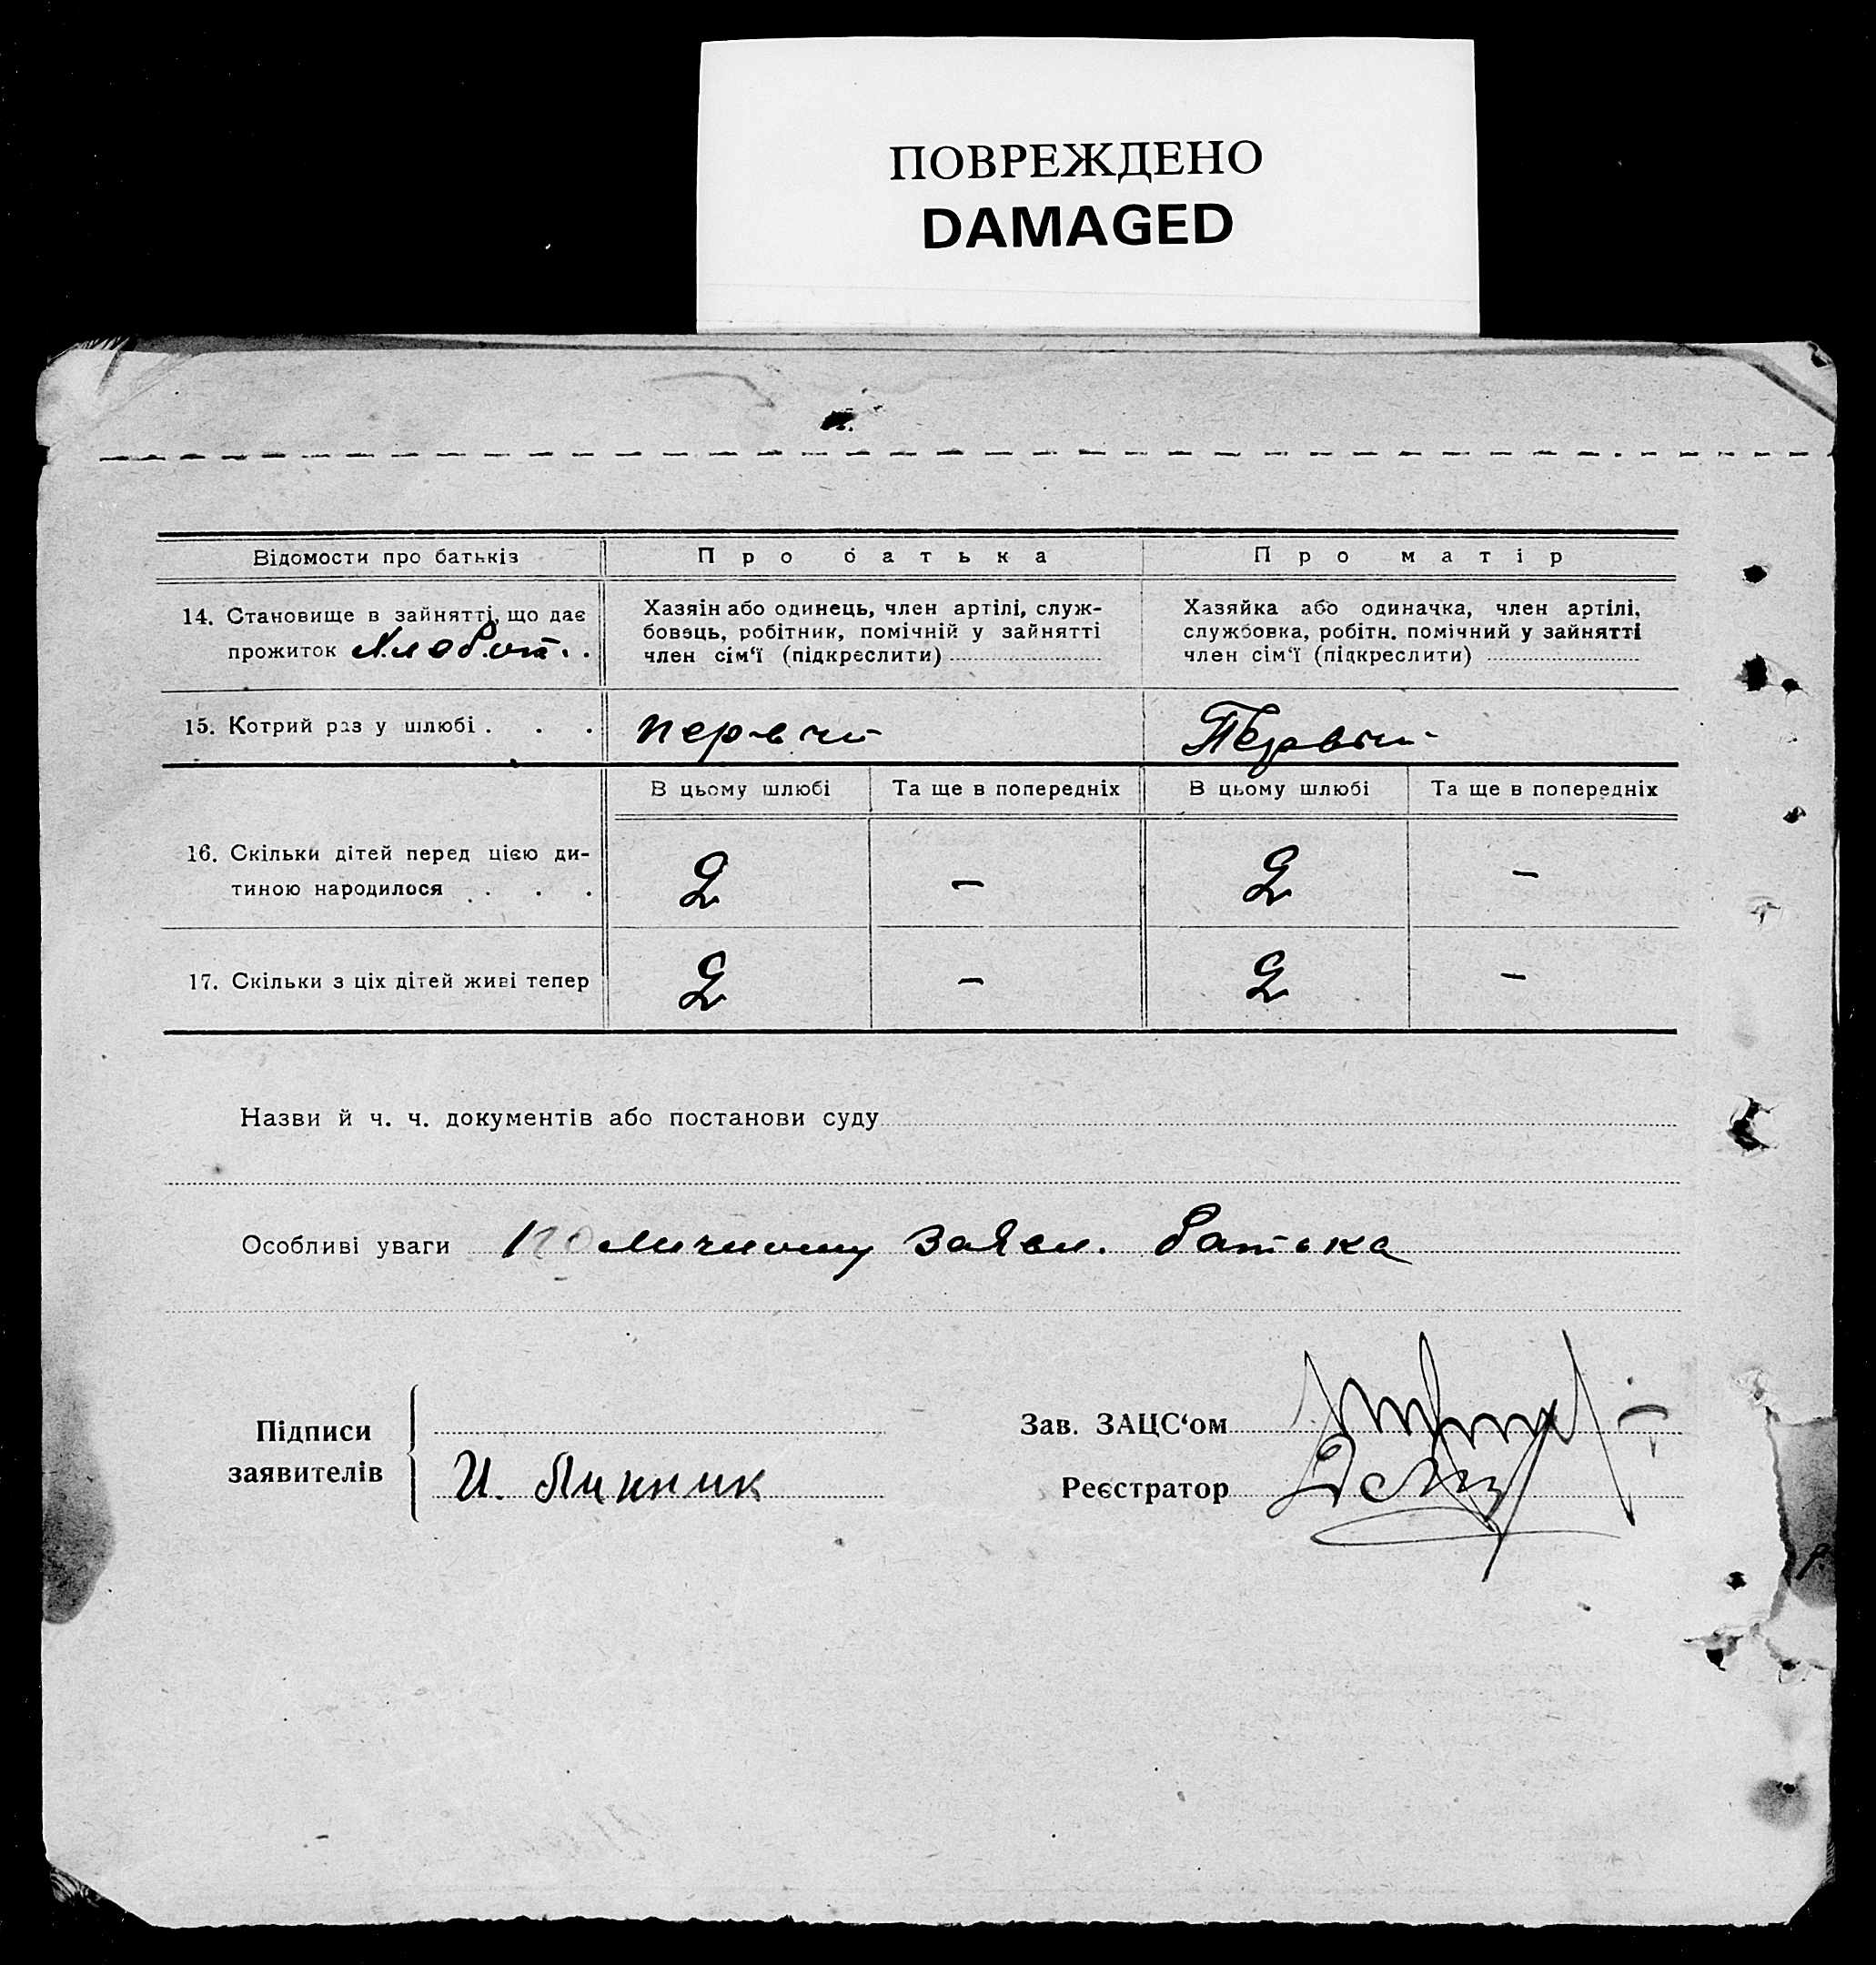 ПОВРЕЖДЕНО
DAMAGED
Відомости про батьків
Про батька
Про матір
14. Становище в зайнятті, що дає
прожиток Хлебороб.
Хазяїн або одинець, член артілі, служ-
бовець, робітник, помічний у зайнятті
член сім‘ї (підкреслити)
Хазяйка або одиначка, член артілі,
службовка, робітн. помічний у зайнятті
член сім‘ї (підкреслити)
15. Котрий раз у шлюбі . . .
первий
Первий
В цьому шлюбі
Та ще в попередніх
В цьому шлюбі
Та ще в попередніх
16. Скільки дітей перед цією ди-
тиною народилося . . .
2
–
2
–
17. Скільки з ціх дітей живі тепер
2
–
2
–
Назви й ч. ч. документів або постанови суду
Особливі уваги По личному заяви. батька
Підписи
заявителів
И. Линник
Зав. ЗАЦС‘ом
Реєстратор